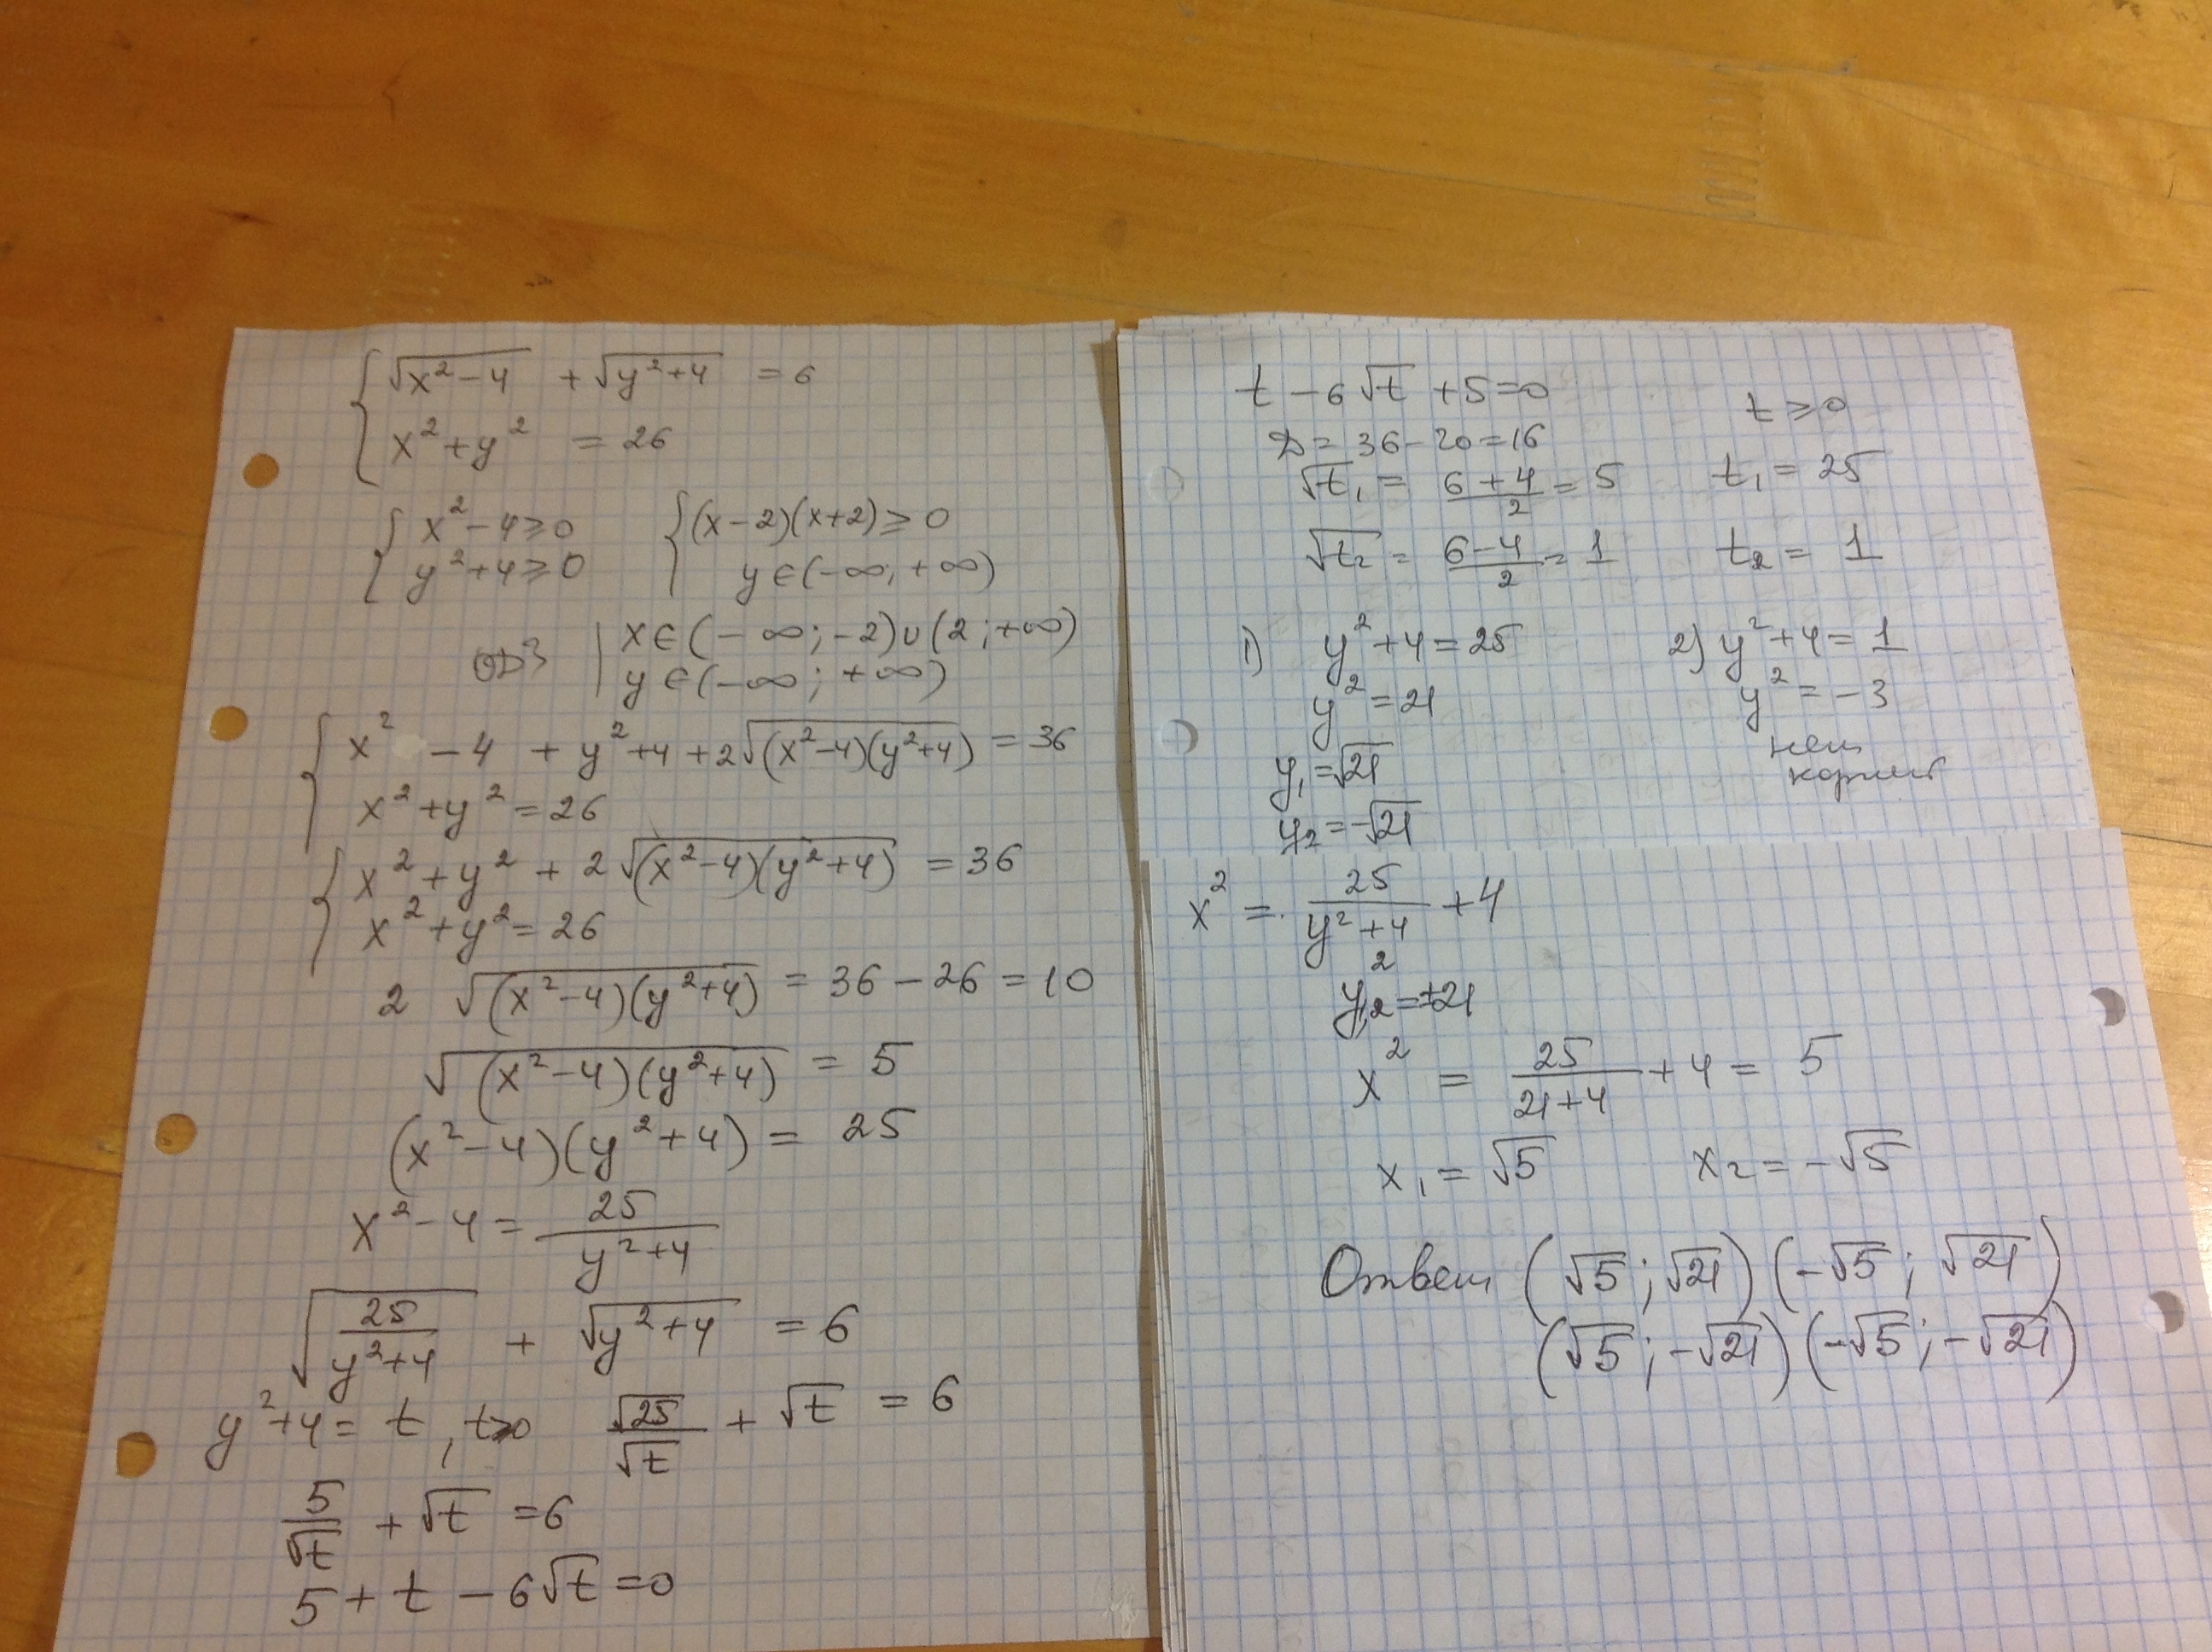 { √(x² - 4) + √(y² + 4) = 6
x² + y² = 26
{ x² - 4 ≥ 0 { (x - 2)(x + 2) ≥ 0
y² + 4 ≥ 0 y ∈ (-∞; +∞)
ОДЗ | x ∈ (-∞; -2) ∪ (2; +∞)
y ∈ (-∞; +∞)
{ x² - 4 + y² + 4 + 2√((x² - 4)(y² + 4)) = 36
x² + y² = 26
{ x² + y² + 2√((x² - 4)(y² + 4)) = 36
x² + y² = 26
2 √((x² - 4)(y² + 4)) = 36 - 26 = 10
√((x² - 4)(y² + 4)) = 5
(x² - 4)(y² + 4) = 25
x² - 4 = 25/(y² + 4)
√(25/(y² + 4)) + √(y² + 4) = 6
y² + 4 = t, t > 0 √25/√t + √t = 6
5/√t + √t = 6
5 + t - 6√t = 0
t - 6√t + 5 = 0 t ≥ 0
D = 36 - 20 = 16
√t₁ = (6 + 4)/2 = 5 t₁ = 25
√t₂ = (6 - 4)/2 = 1 t₂ = 1
1) y² + 4 = 25 2) y² + 4 = 1
y² = 21 y² = -3
y₁ = √21 нет
y₂ = -√21 корней
x² = 25/(y² + 4) + 4
y²₂ = ±21
x² = 25/(21 + 4) + 4 = 5
x₁ = √5 x₂ = -√5
Ответ (√5; √21) (-√5; √21)
(√5; -√21) (-√5; -√21)